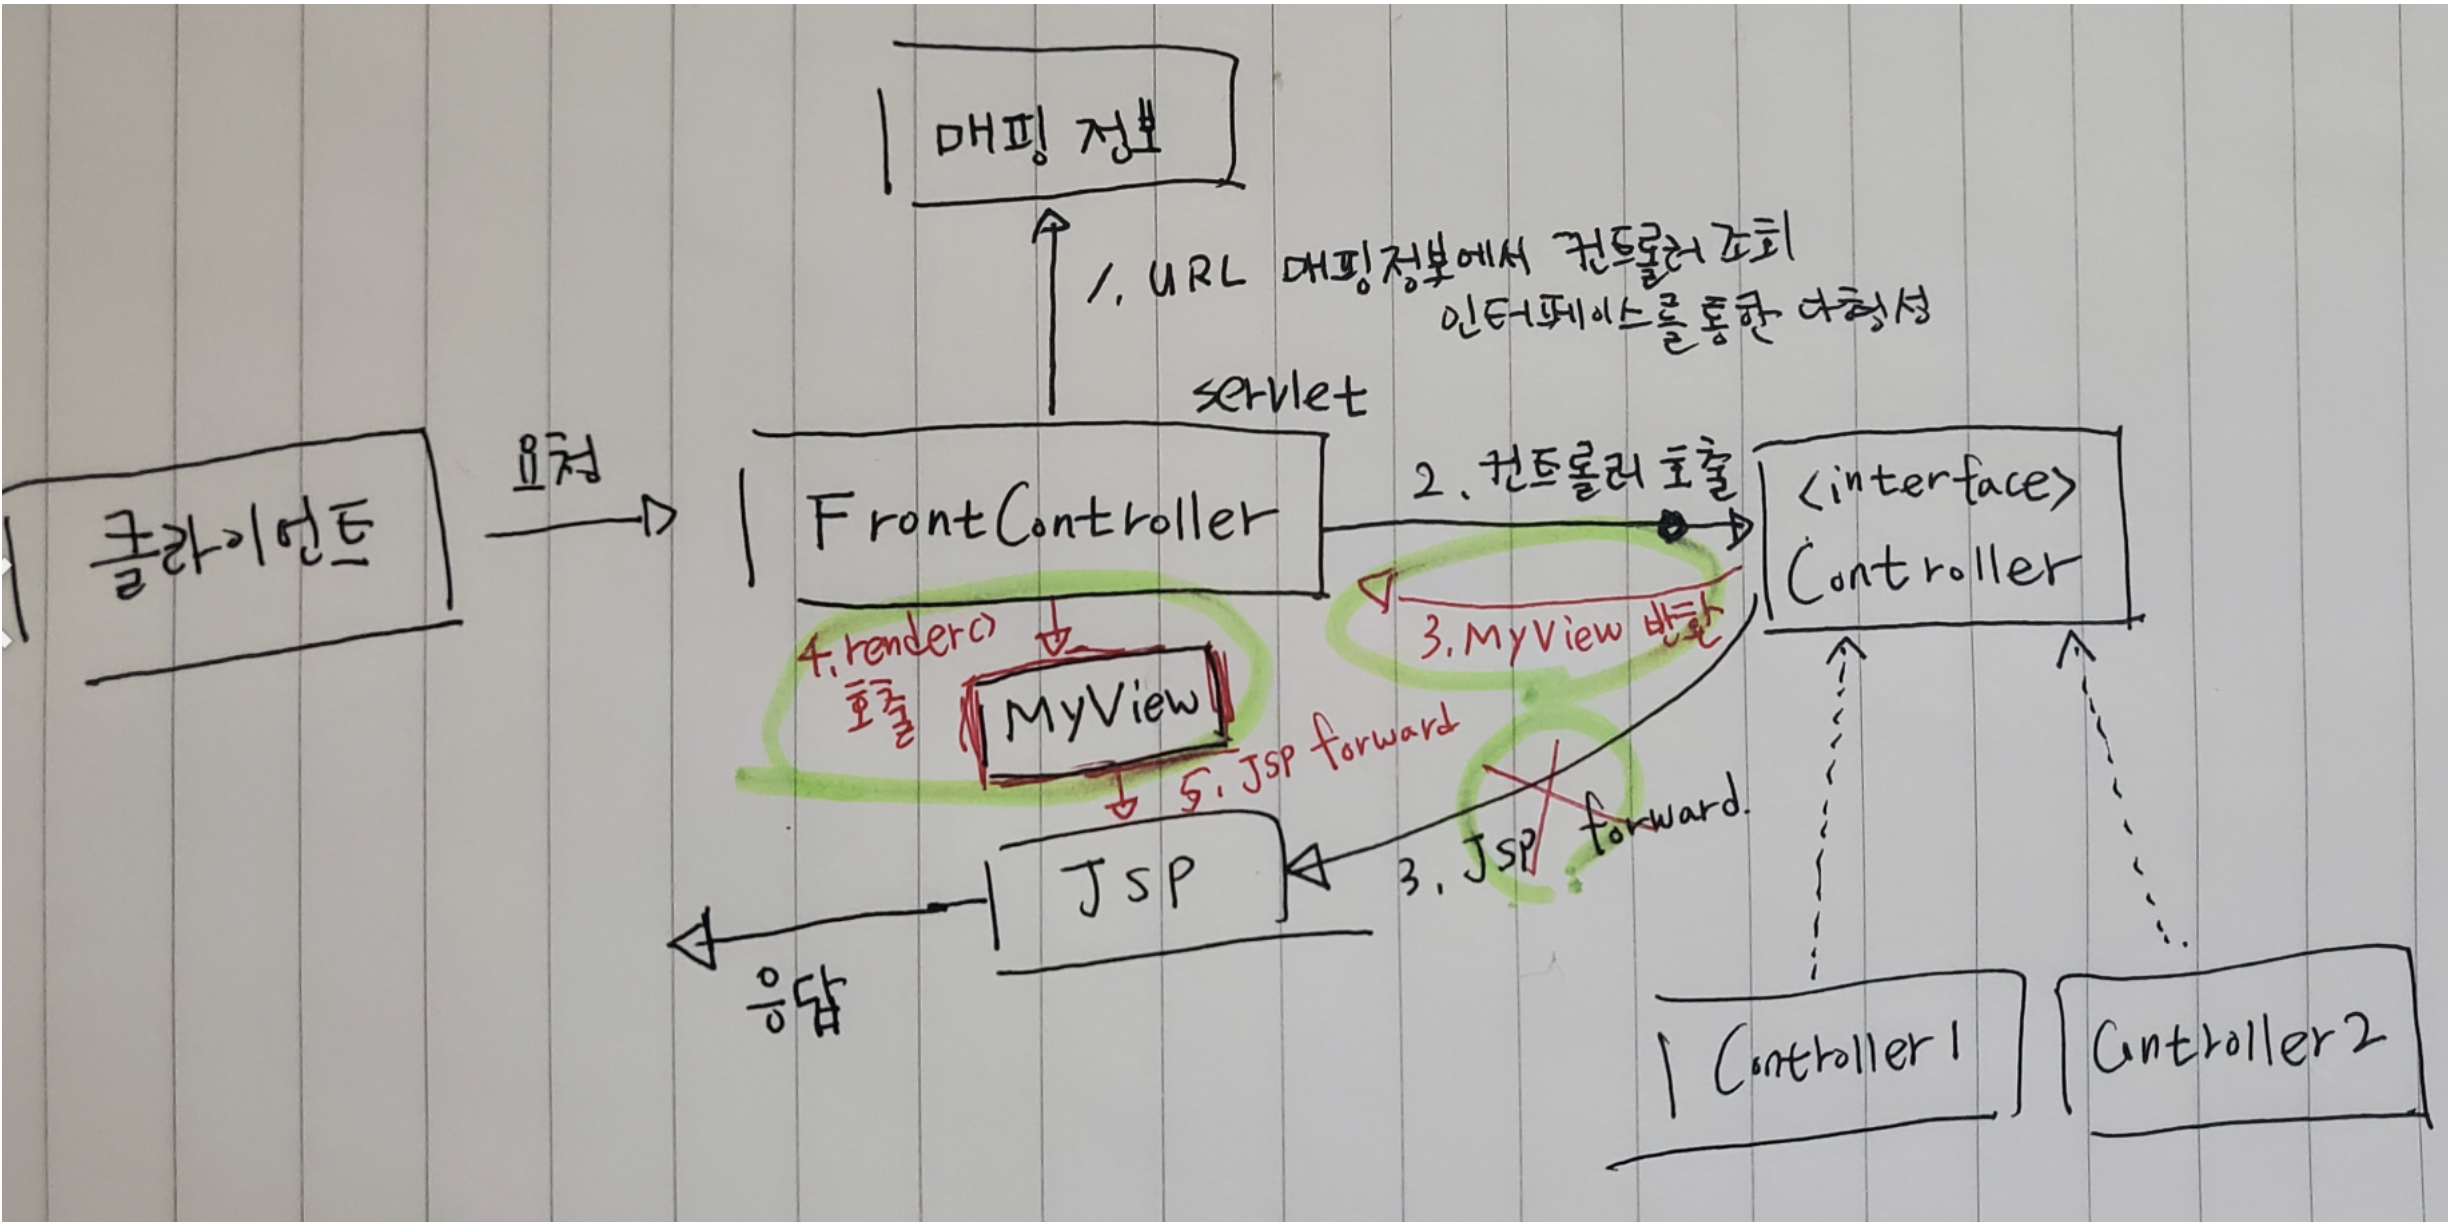 매핑 정보
1. URL 매핑정보에서 컨트롤러 조회
인터페이스를 통한 다형성
servlet
클라이언트
요청
FrontController
2. 컨트롤러 호출
<interface>
Controller
3. MyView 반환
4. render()
호출
MyView
5. JSP forward
3. JSP forward.
JSP
응답
Controller 1
Controller 2